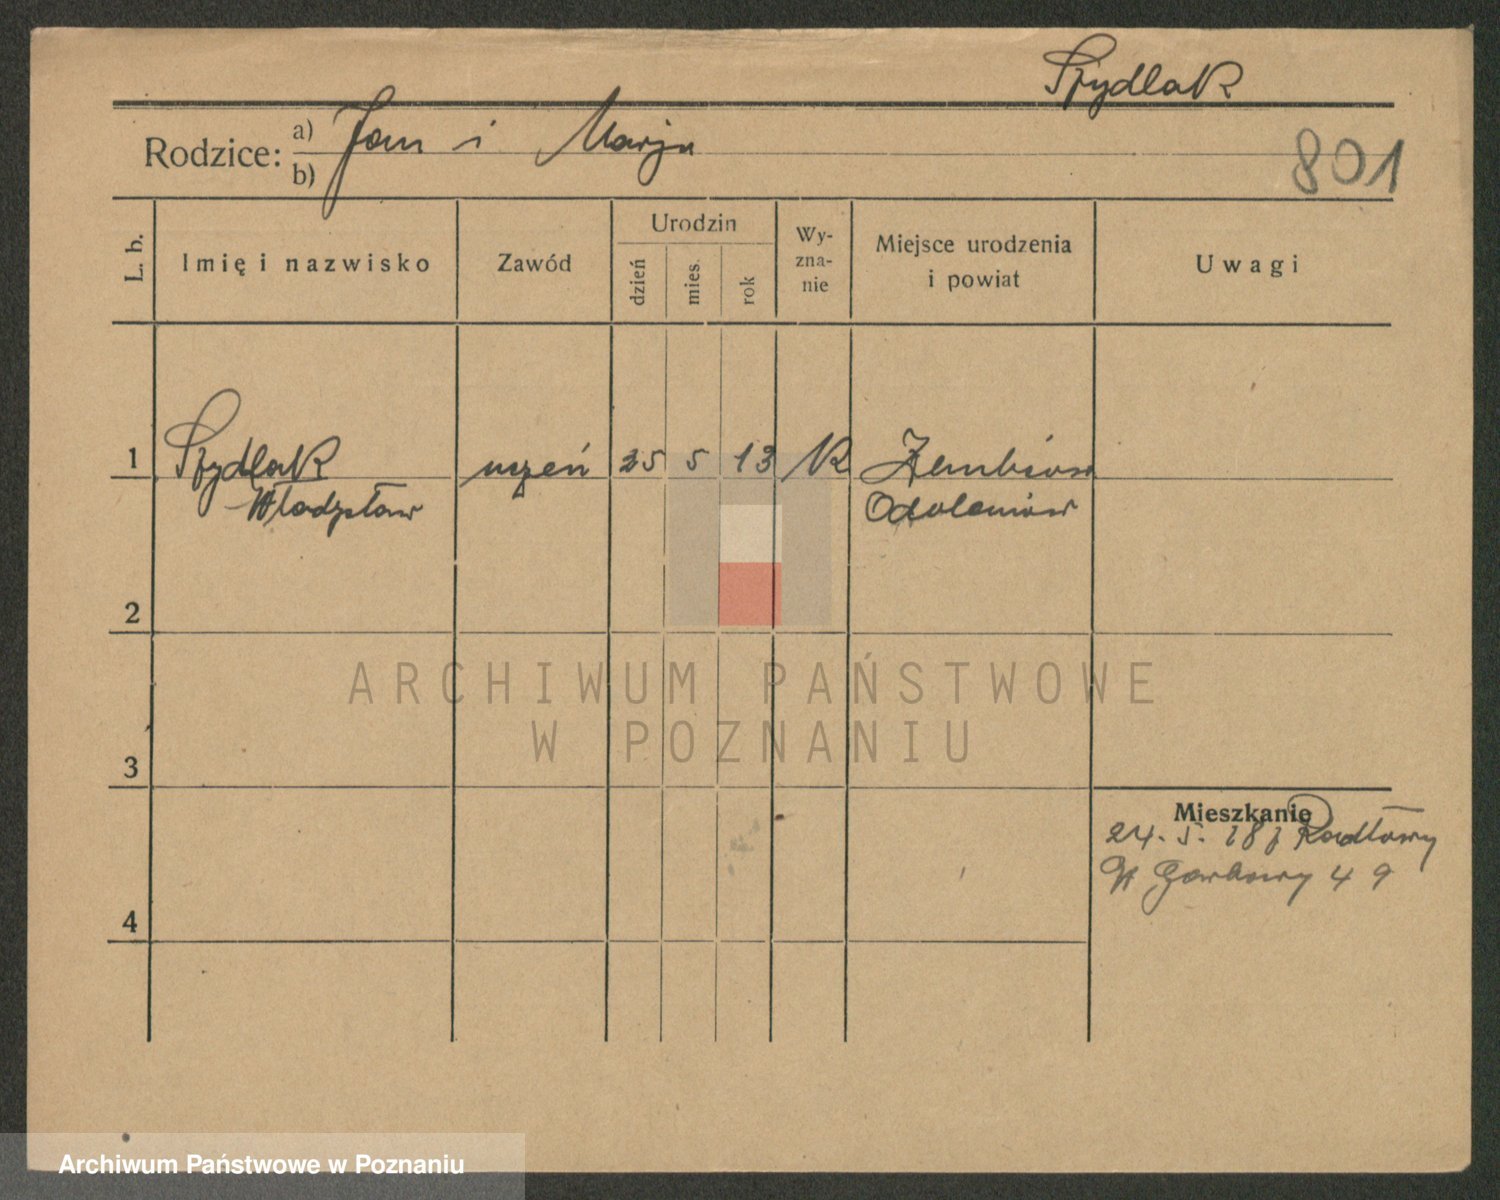 Szydlak
Rodzice: a) Jan i Marja
b)
801
L. b.
Imię i nazwisko
Zawód
Urodzin
dzień
mies.
rok
Wy-
zna-
nie
Miejsce urodzenia
i powiat
Uwagi
1 Szydlak uczeń 25 5 13 K
Władysław
2
3
4
Mieszkanie
24. 5. 28 z Radłowy
W Garbary 49
ARCHIWUM PAŃSTWOWE
W POZNANIU
Archiwum Państwowe w Poznaniu